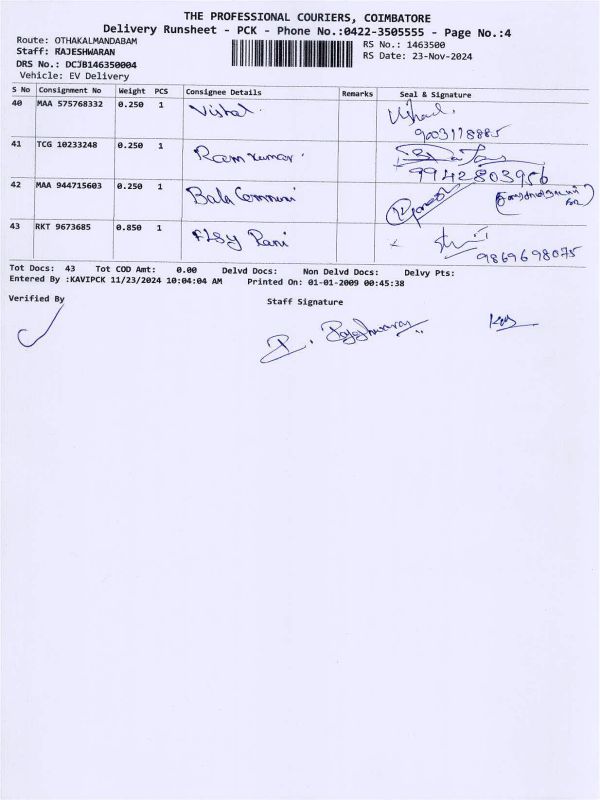 THE PROFESSIONAL COURIERS, COIMBATORE
Delivery Runsheet - PCK - Phone No.:0422-3505555 - Page No.:4
Route: OTHAKALMANDABAM
RS No.: 1463500
Staff: RAJESHWARAN
RS Date: 23-Nov-2024
DRS No.: DCJB146350004
Vehicle: EV Delivery
S No Consignment No Weight PCS Consignee Details Remarks Seal & Signature
40 MAA 575768332 0.250 1 Vishal.
9003178885
41 TCG 10233248 0.250 1 Ram kumar.
9942803956
42 MAA 944715603 0.250 1 Bala
43 RKT 9673685 0.850 1 Rani
9869698075
Tot Docs: 43 Tot COD Amt: 0.00 Delvd Docs: Non Delvd Docs: Delvy Pts:
Entered By :KAVIPCK 11/23/2024 10:04:04 AM Printed On: 01-01-2009 00:45:38
Verified By Staff Signature
P. Rajeshwaran